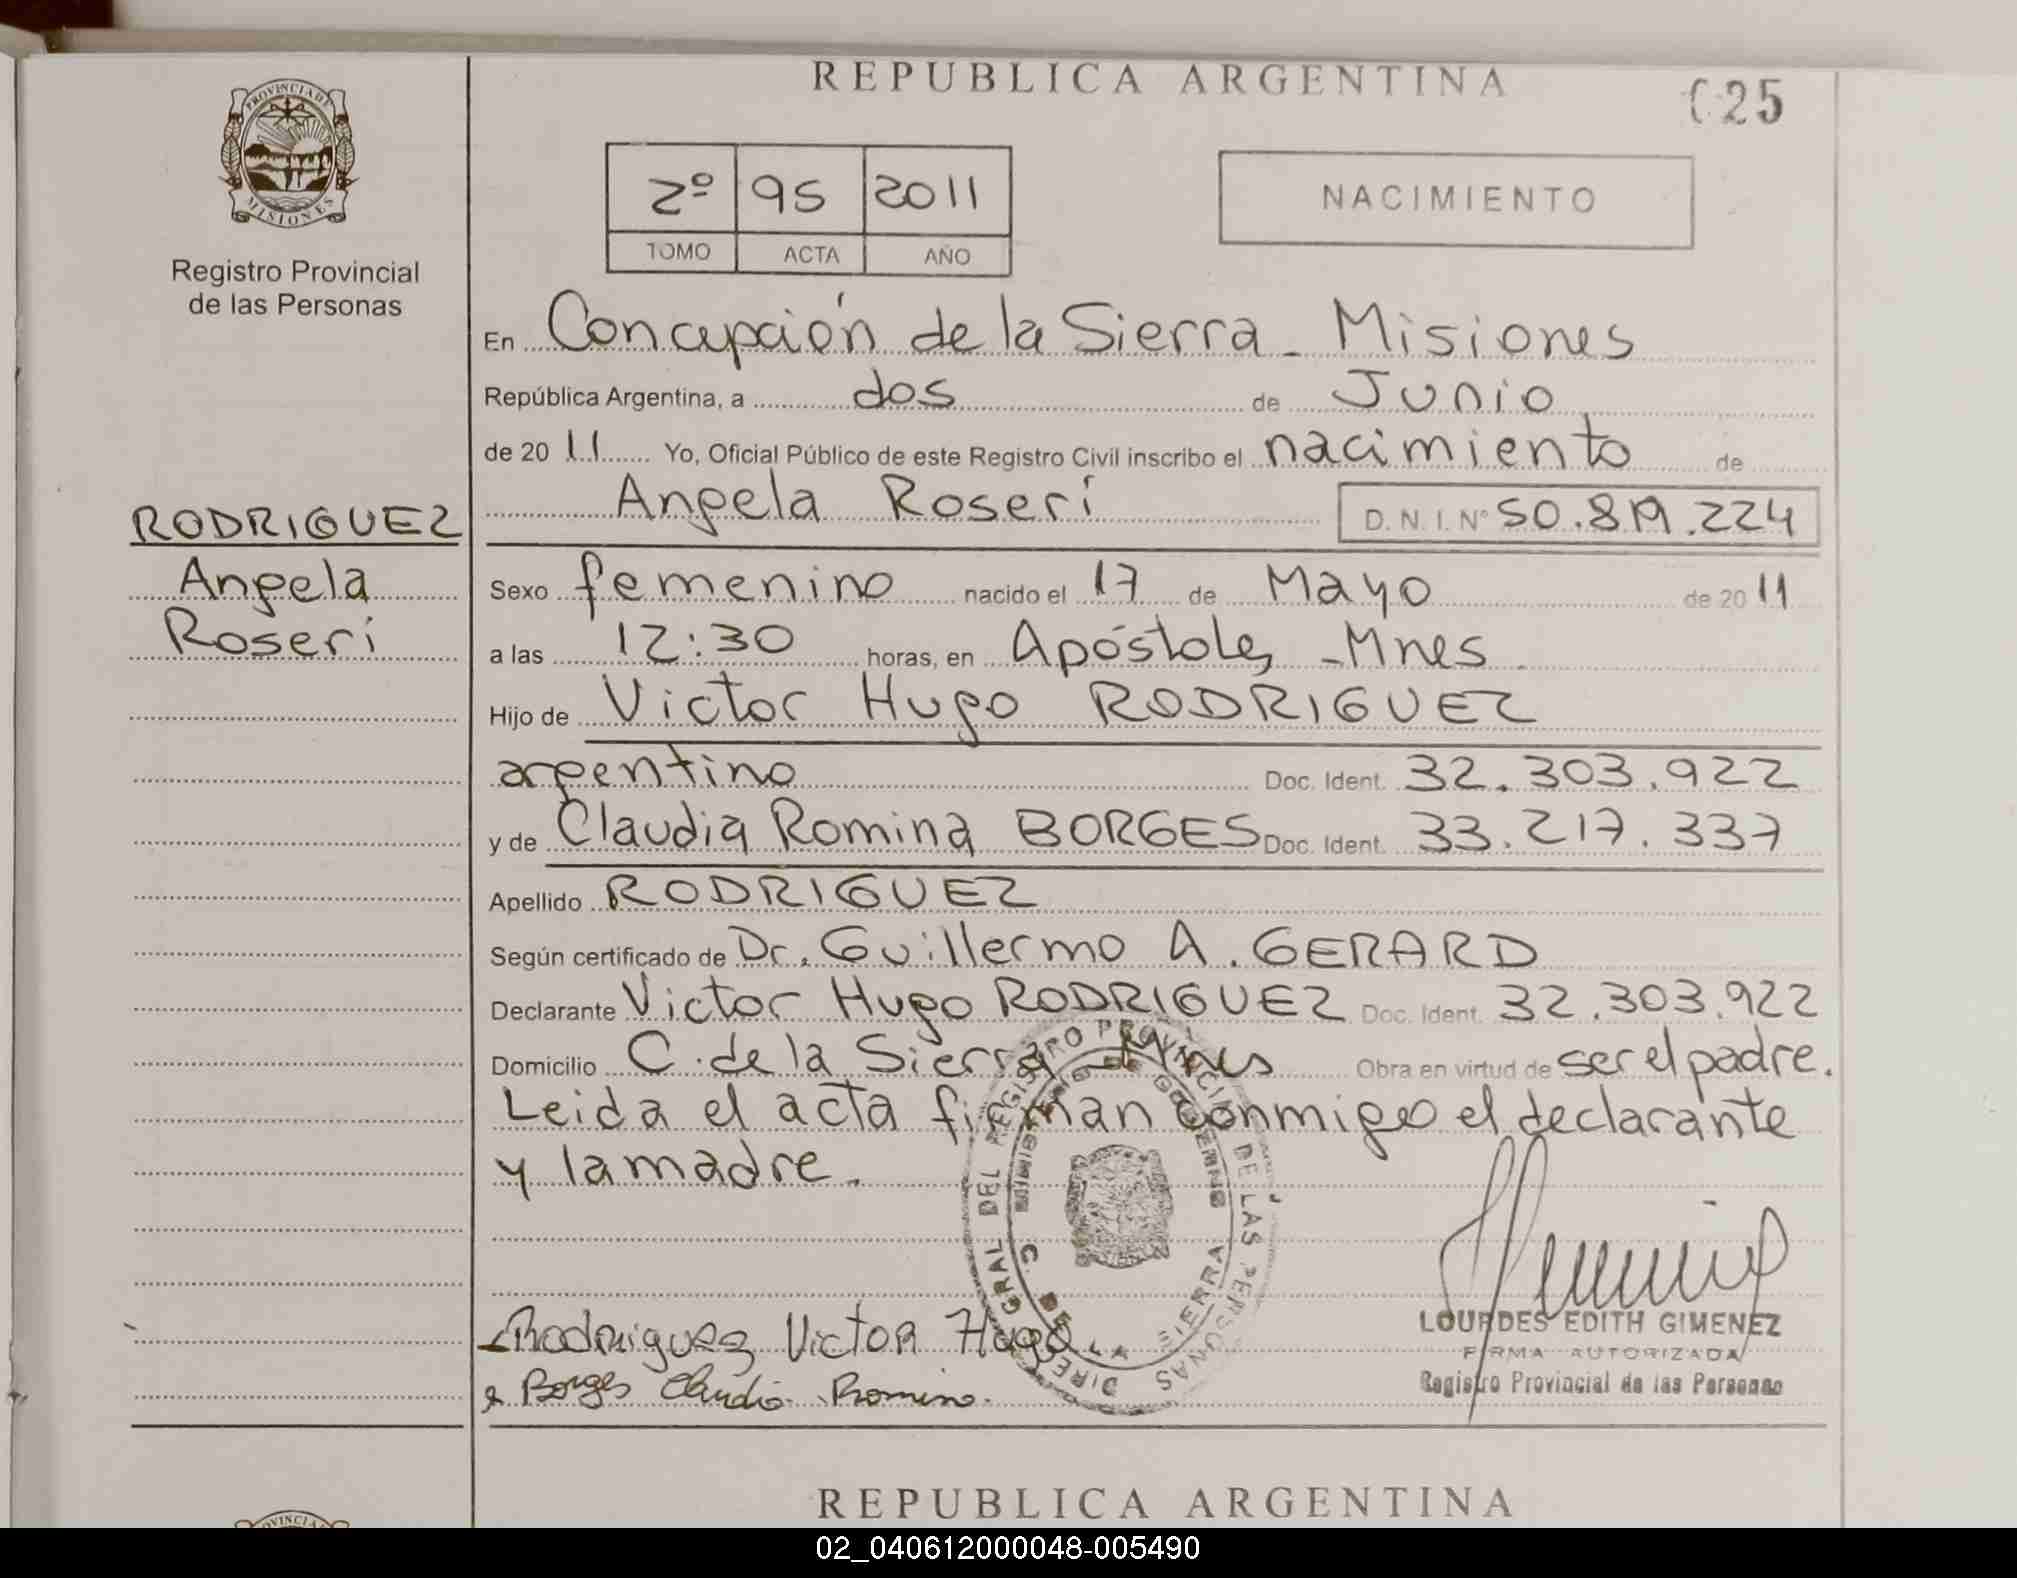 REPUBLICA ARGENTINA
025
PROVINCIA DE
MISIONES
Registro Provincial
de las Personas
2º 95 2011
TOMO ACTA AÑO
NACIMIENTO
En Concepción de la Sierra - Misiones
República Argentina, a dos de Junio
de 2011 Yo, Oficial Público de este Registro Civil inscribo el nacimiento de
Angela Roseri D. N. I. Nº 50.819.224
RODRIGUEZ
Angela
Roseri
Sexo femenino nacido el 17 de Mayo de 2011
a las 12:30 horas, en Apóstoles - Mnes
Hijo de Victor Hugo RODRIGUEZ
argentino Doc. Ident. 32.303.922
y de Claudia Romina BORGES Doc. Ident. 33.217.337
Apellido RODRIGUEZ
Según certificado de Dr. Guillermo A. GERARD
Declarante Victor Hugo RODRIGUEZ Doc. Ident. 32.303.922
Domicilio C. de la Sierra - Mnes Obra en virtud de ser el padre.
Leida el acta firman conmigo el declarante
y la madre.
DIREC. GRAL DEL REGISTRO PROVINCIAL DE LAS PERSONAS
MINISTERIO DE GOBIERNO
C. DE LA SIERRA
Rodriguez Victor Hugo
Borges Claudia Romina.
LOURDES EDITH GIMENEZ
FIRMA AUTORIZADA
Registro Provincial de las Personas
REPUBLICA ARGENTINA
02_040612000048-005490